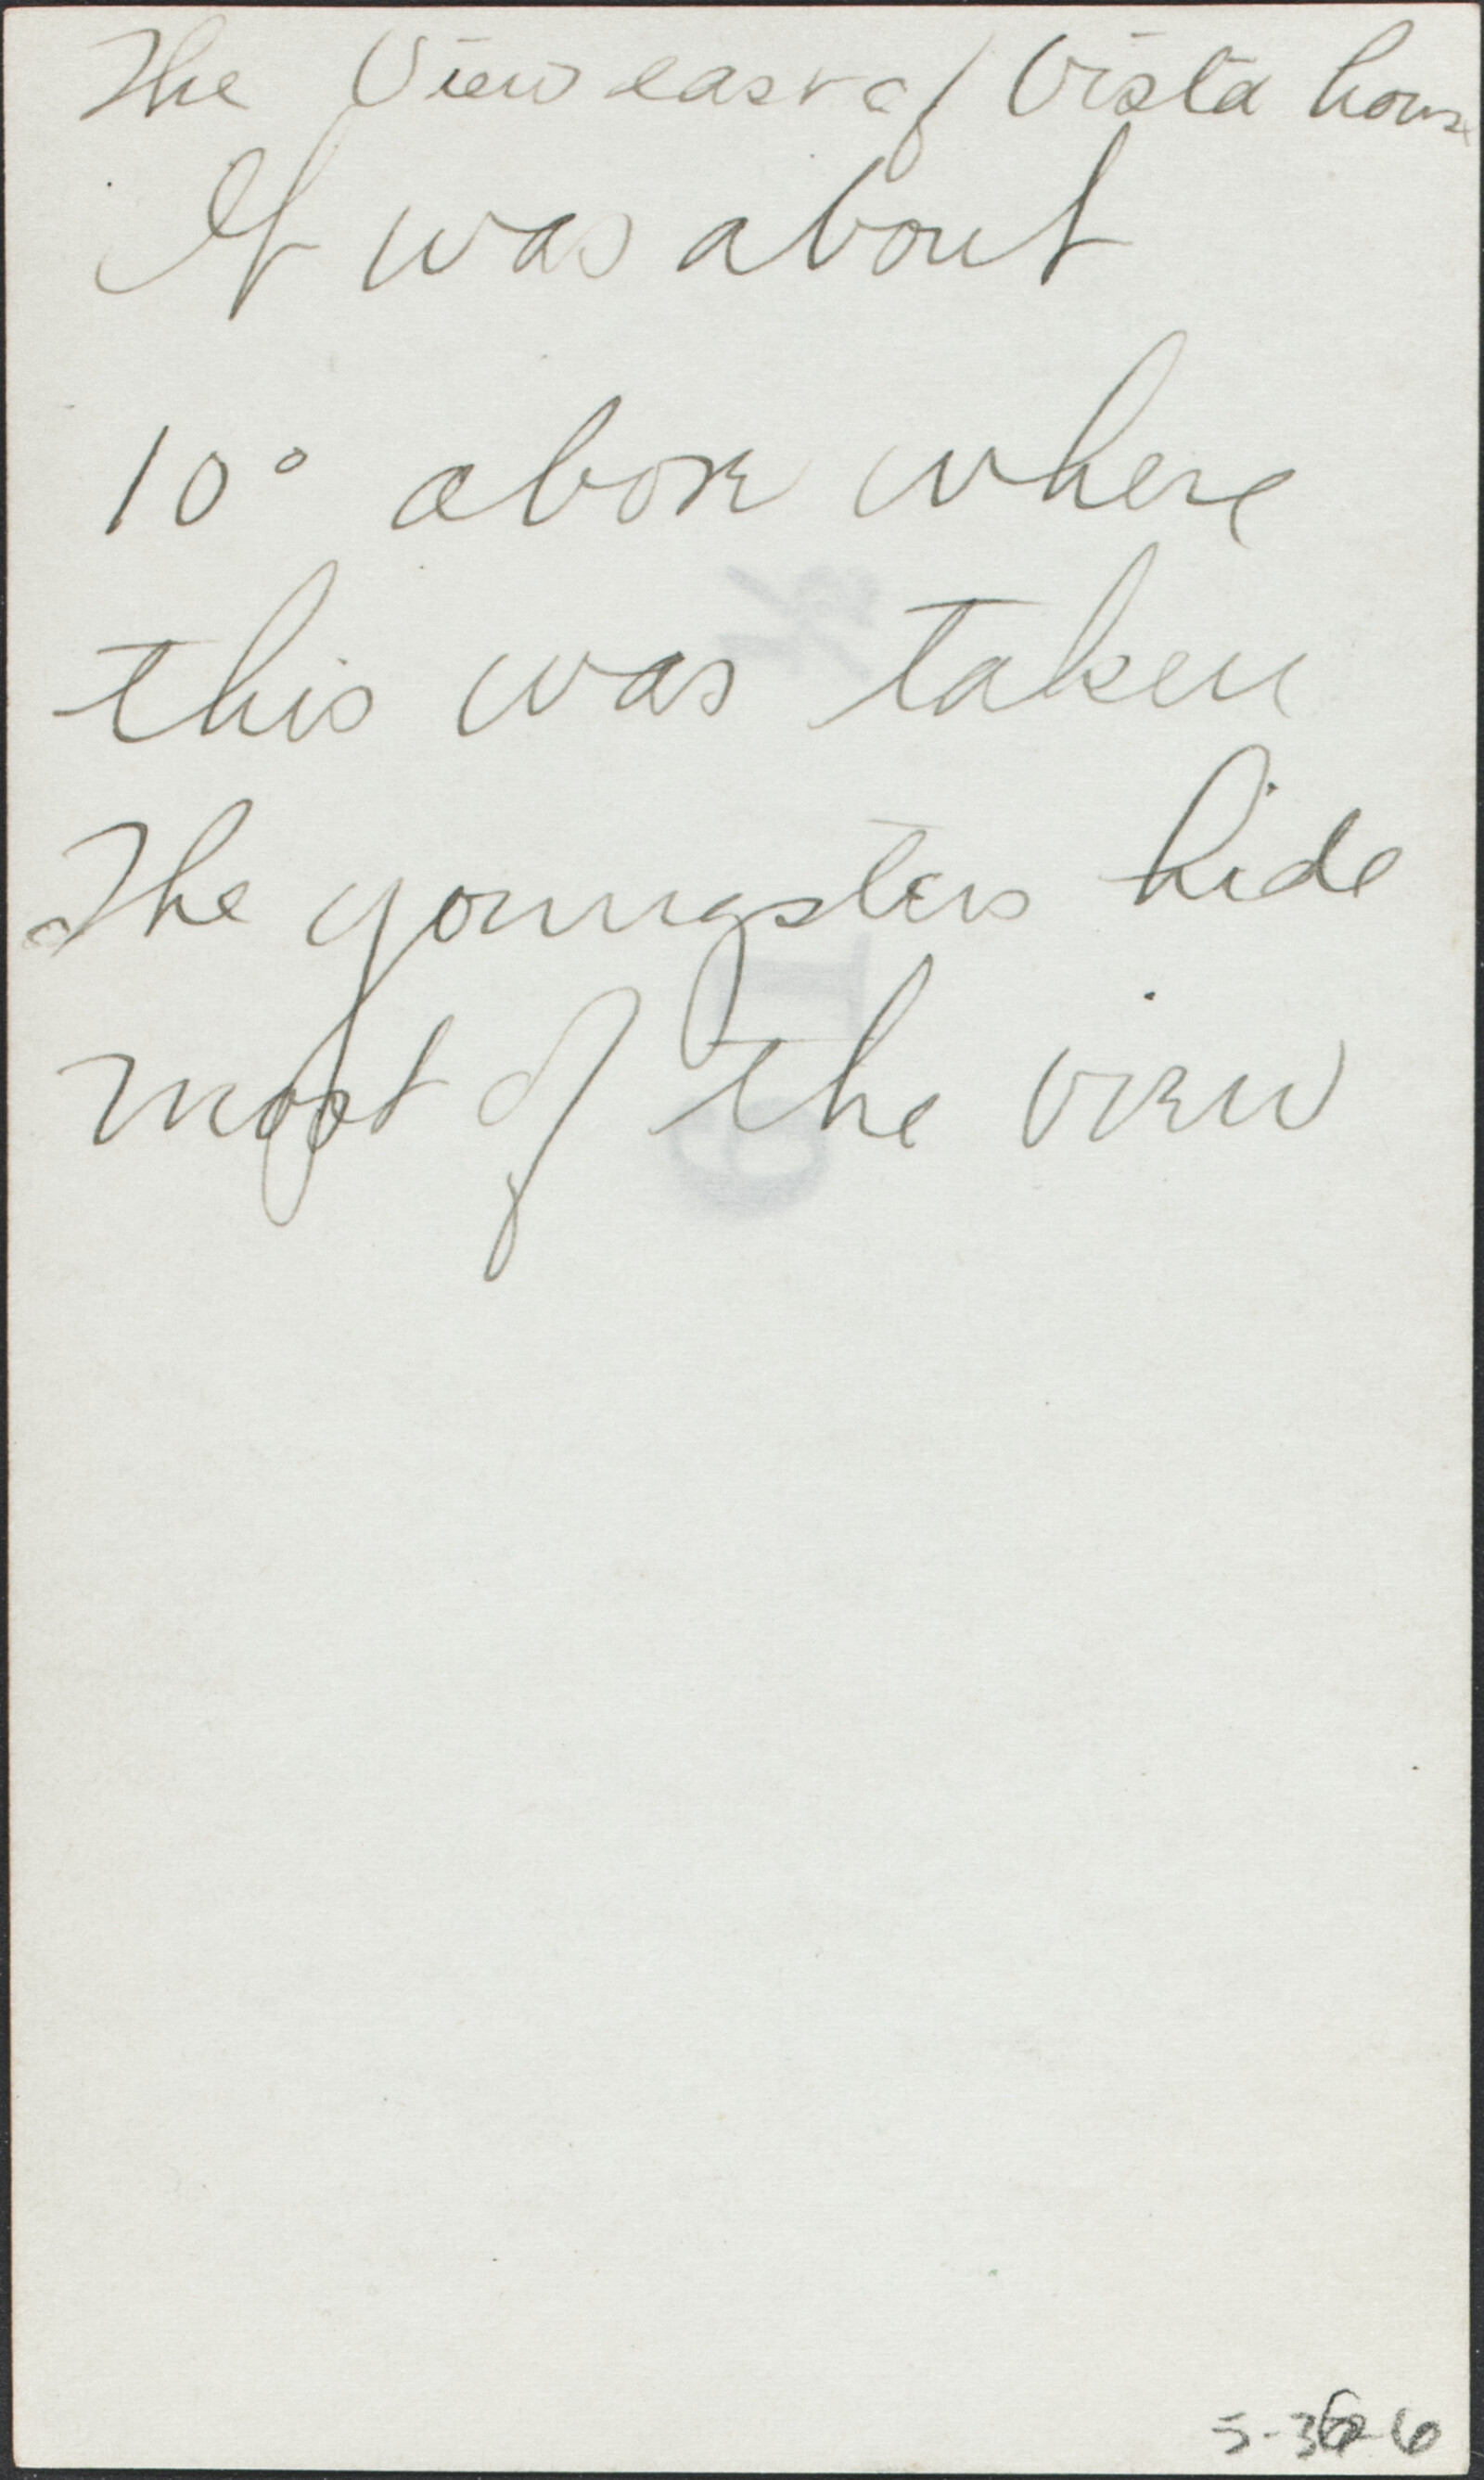 The View east of Vista house
It was about
10° above where
this was taken
The youngsters hide
most of the view